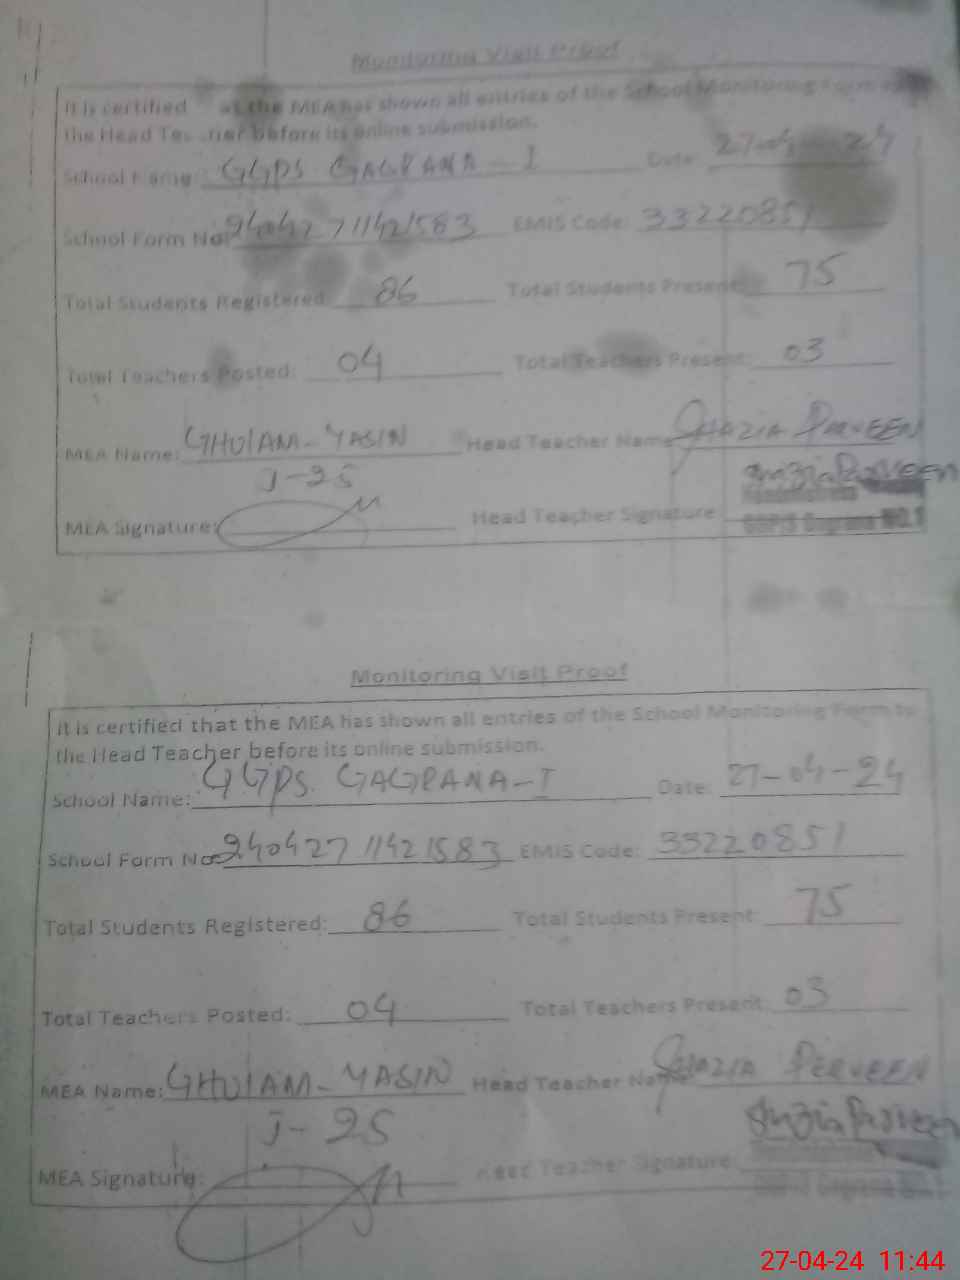 Monitoring Visit Proof
It is certified at the MEA has shown all entries of the School Monitoring Form to
the Head Teacher before its online submission.
School Name: GGPS GAGRANA-I Date: 27-04-24
School Form No: 240427 11421583 EMIS Code: 33220851
Total Students Registered: 86 Total Students Present: 75
Total Teachers Posted: 04 Total Teachers Present: 03
MEA Name: GHULAM-YASIN Head Teacher Name: SHAZIA PERVEEN
J-25
MEA Signature: Head Teacher Signature
Shazia Parveen
Headmistress
NO.1
Monitoring Visit Proof
It is certified that the MEA has shown all entries of the School Monitoring Form to
the Head Teacher before its online submission.
School Name: GGPS. GAGRANA-I Date: 27-04-24
School Form No: 240427 11421583 EMIS Code: 33220851
Total Students Registered: 86 Total Students Present: 75
Total Teachers Posted: 04 Total Teachers Present: 03
MEA Name: GHULAM-YASIN Head Teacher Name: SHAZIA PERVEEN
J-25
Shazia Parveen
MEA Signature: Head Teacher Signature:
27-04-24 11:44